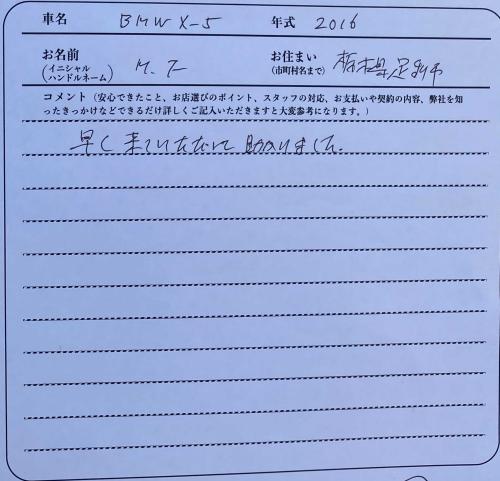 車名 BMW X-5 年式 2016
お名前 お住まい
(イニシャル ハンドルネーム) M. T (市町村名まで) 栃木県足利市
コメント（安心できたこと、お店選びのポイント、スタッフの対応、お支払いや契約の内容、弊社を知
ったきっかけなどできるだけ詳しくご記入いただきますと大変参考になります。）
早く来ていただいて助かりました。